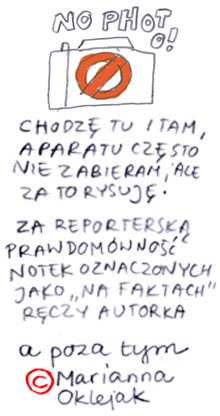 NO PHOT
O!
CHODZĘ TU I TAM,
APARATU CZĘSTO
NIE ZABIERAM, ALE
ZA TO RYSUJĘ.
ZA REPORTERSKĄ
PRAWDOMÓWNOŚĆ
NOTEK OZNACZONYCH
JAKO „NA FAKTACH"
RĘCZY AUTORKA
a poza tym
© Marianna
Oklejak